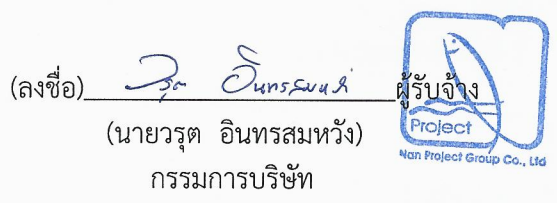 (ลงชื่อ) วรุต อินทรสมหวัง ผู้รับจ้าง
(นายวรุต อินทรสมหวัง)
กรรมการบริษัท
Project
Nan Project Group Co., Ltd